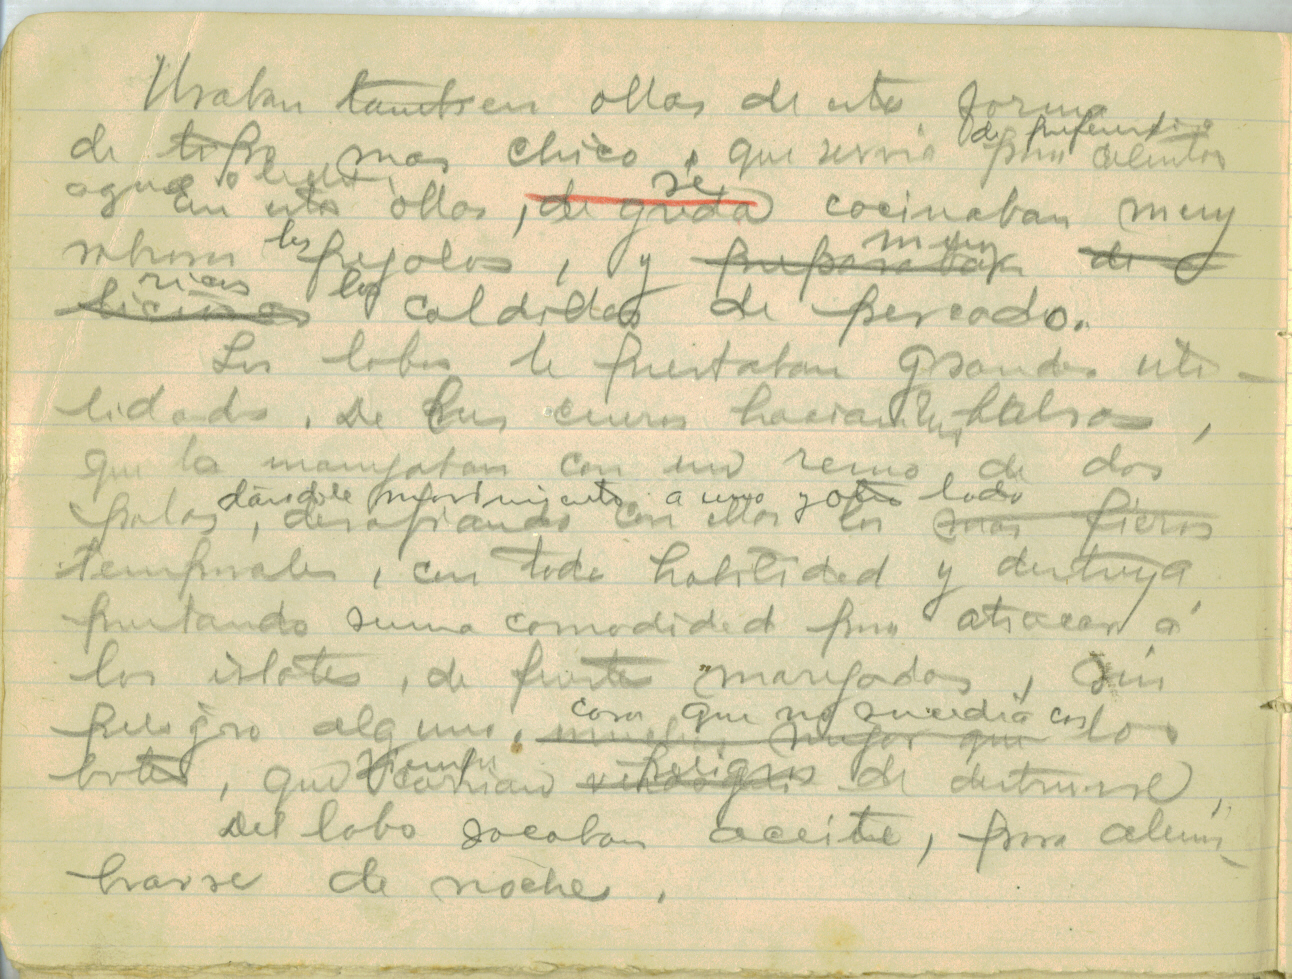 Usaban tambien ollas de esta forma
de tipo mas chico, que servia para calentar
de preferencia
agua o
En estas ollas, de greda se cocinaban muy
sabrosos los frejoles, y preparaban muy de
liciosos ricos los caldillos de pescado.
Los lobos le prestaban grandes uti-
lidades. De sus cueros hacian sus balsas,
que la manejaban con un remo de dos
dándole movimiento a uno y otro lado
palas, desafiando con ellas los mas fieros
temporales, con toda habilidad y destreza
prestando suma comodidad para atracar a
los islotes, de fuertes marejadas, sin
cosa que no sucedia con
peligro alguno, mucho mejor que los
botes, que siempre corrian peligro de destruirse.
Del lobo sacaban aceite, para alum-
brarse de noche.